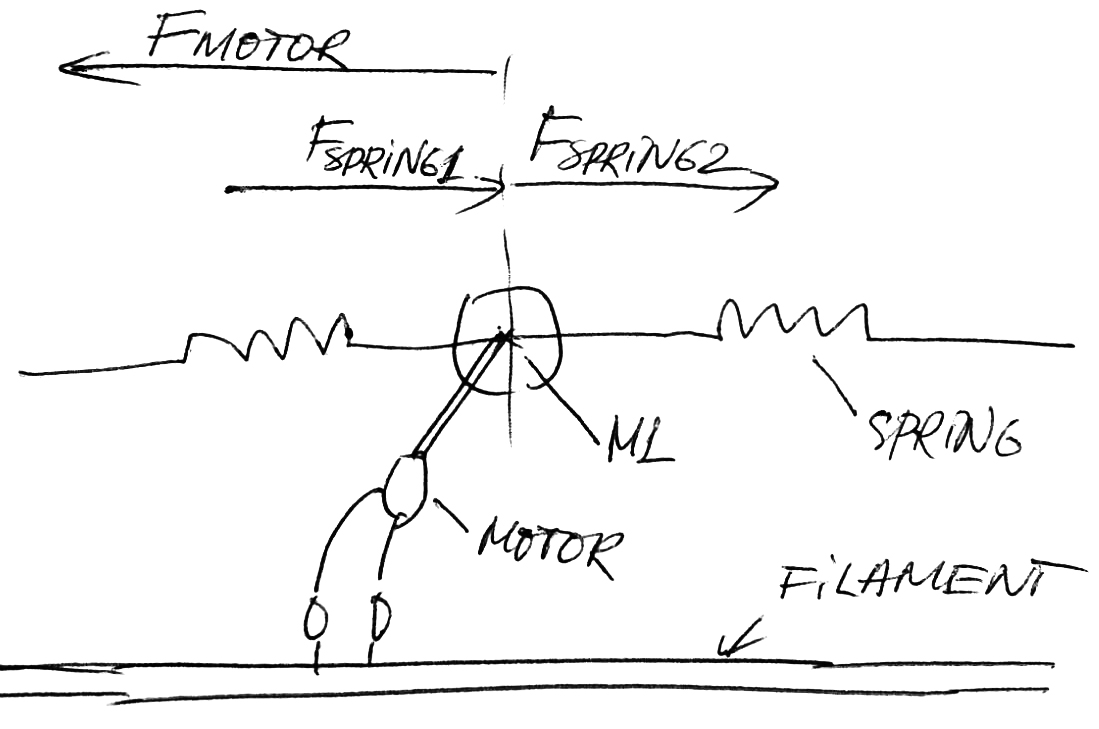 FMOTOR
FSPRING1 FSPRING2
ML
SPRING
MOTOR
FILAMENT